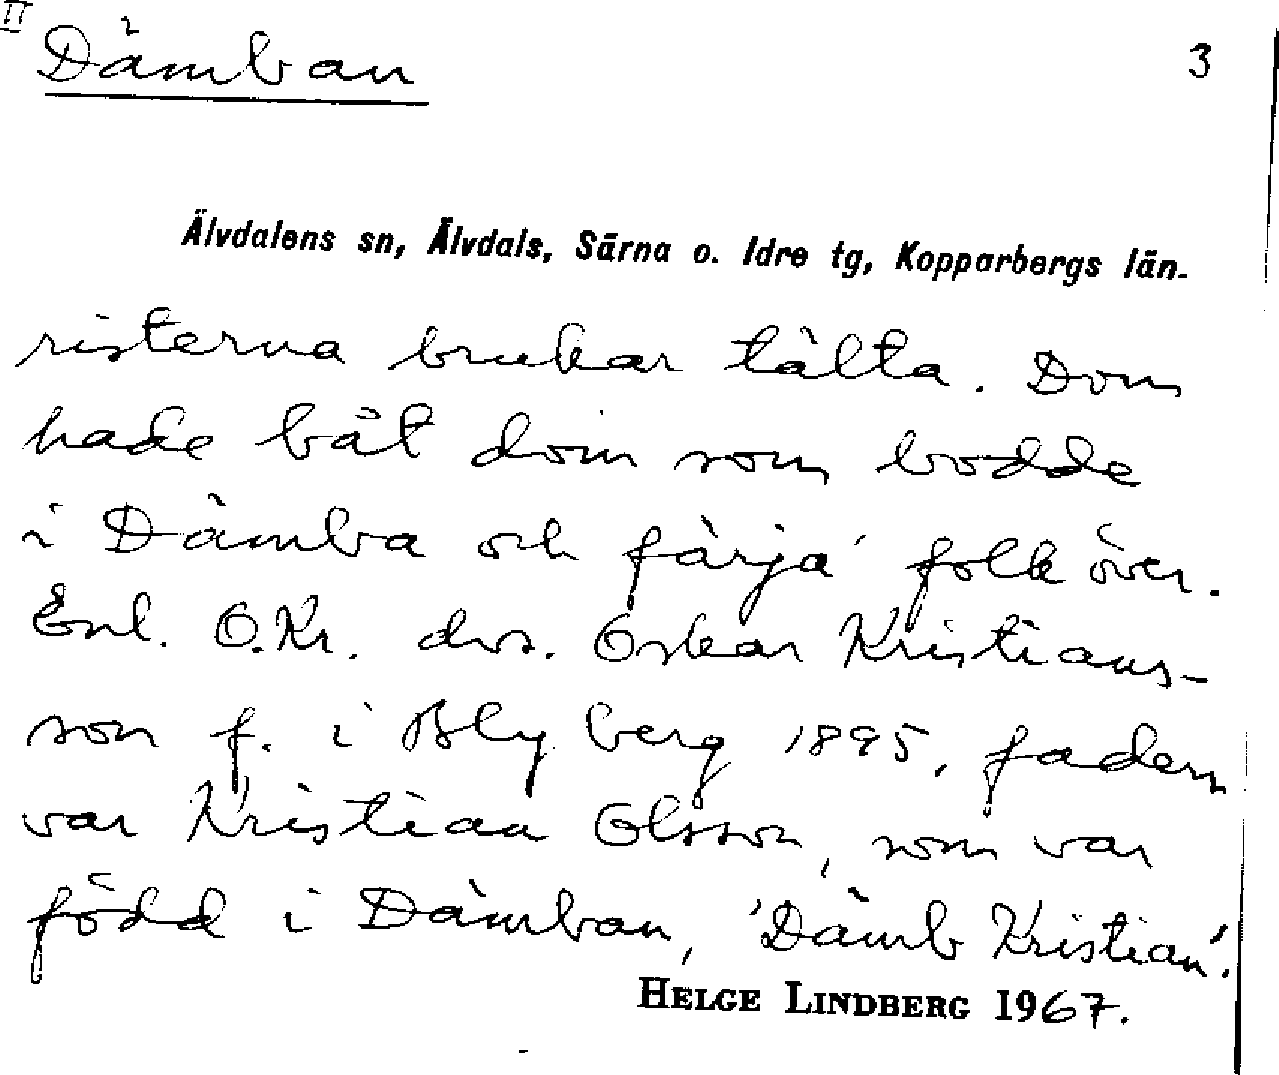 II
Dämban
3
Älvdalens sn, Älvdals, Särna o. Idre tg, Kopparbergs län.
risterna brukar tälta. Dom
hade båt dom som bodde
i Dämba och färja' folk över.
Enl. O.Kr. dvs. Oskar Kristians-
son f. i Blyberg 1895, fadern
var Kristian Olsson, som var
född i Dämban, 'Dämb Kristian'.
HELGE LINDBERG 1967.